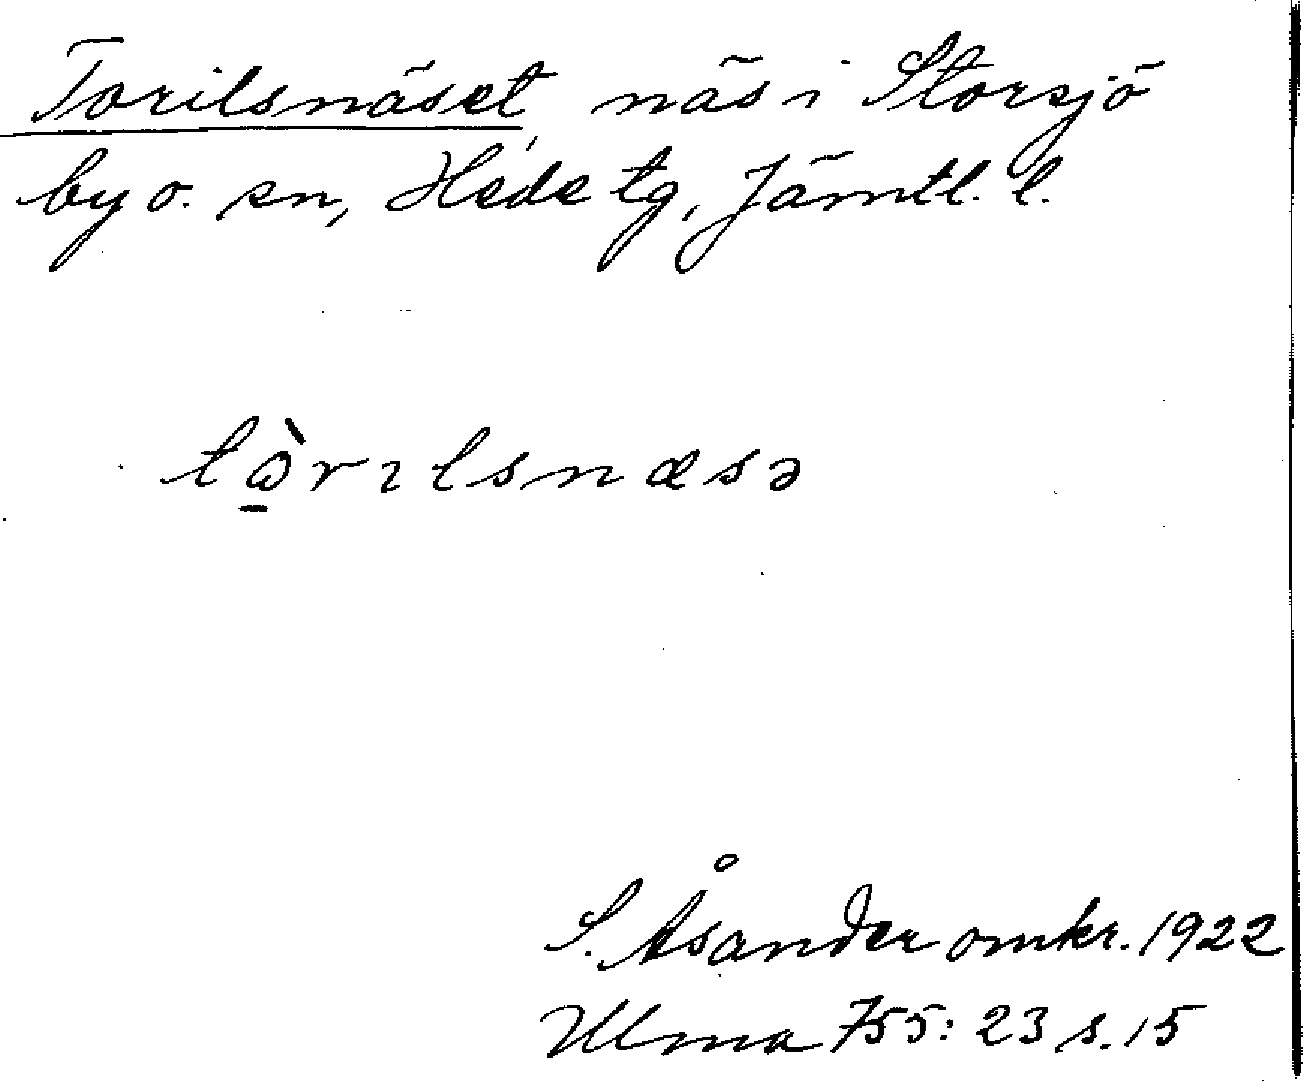 Torilsnäset, näs i Storsjö
by o. sn, Hede tg, Jämtl. l.
tὼ̱rılsnæsə
S. Åsander omkr. 1922
Ulma 755: 23 s. 15